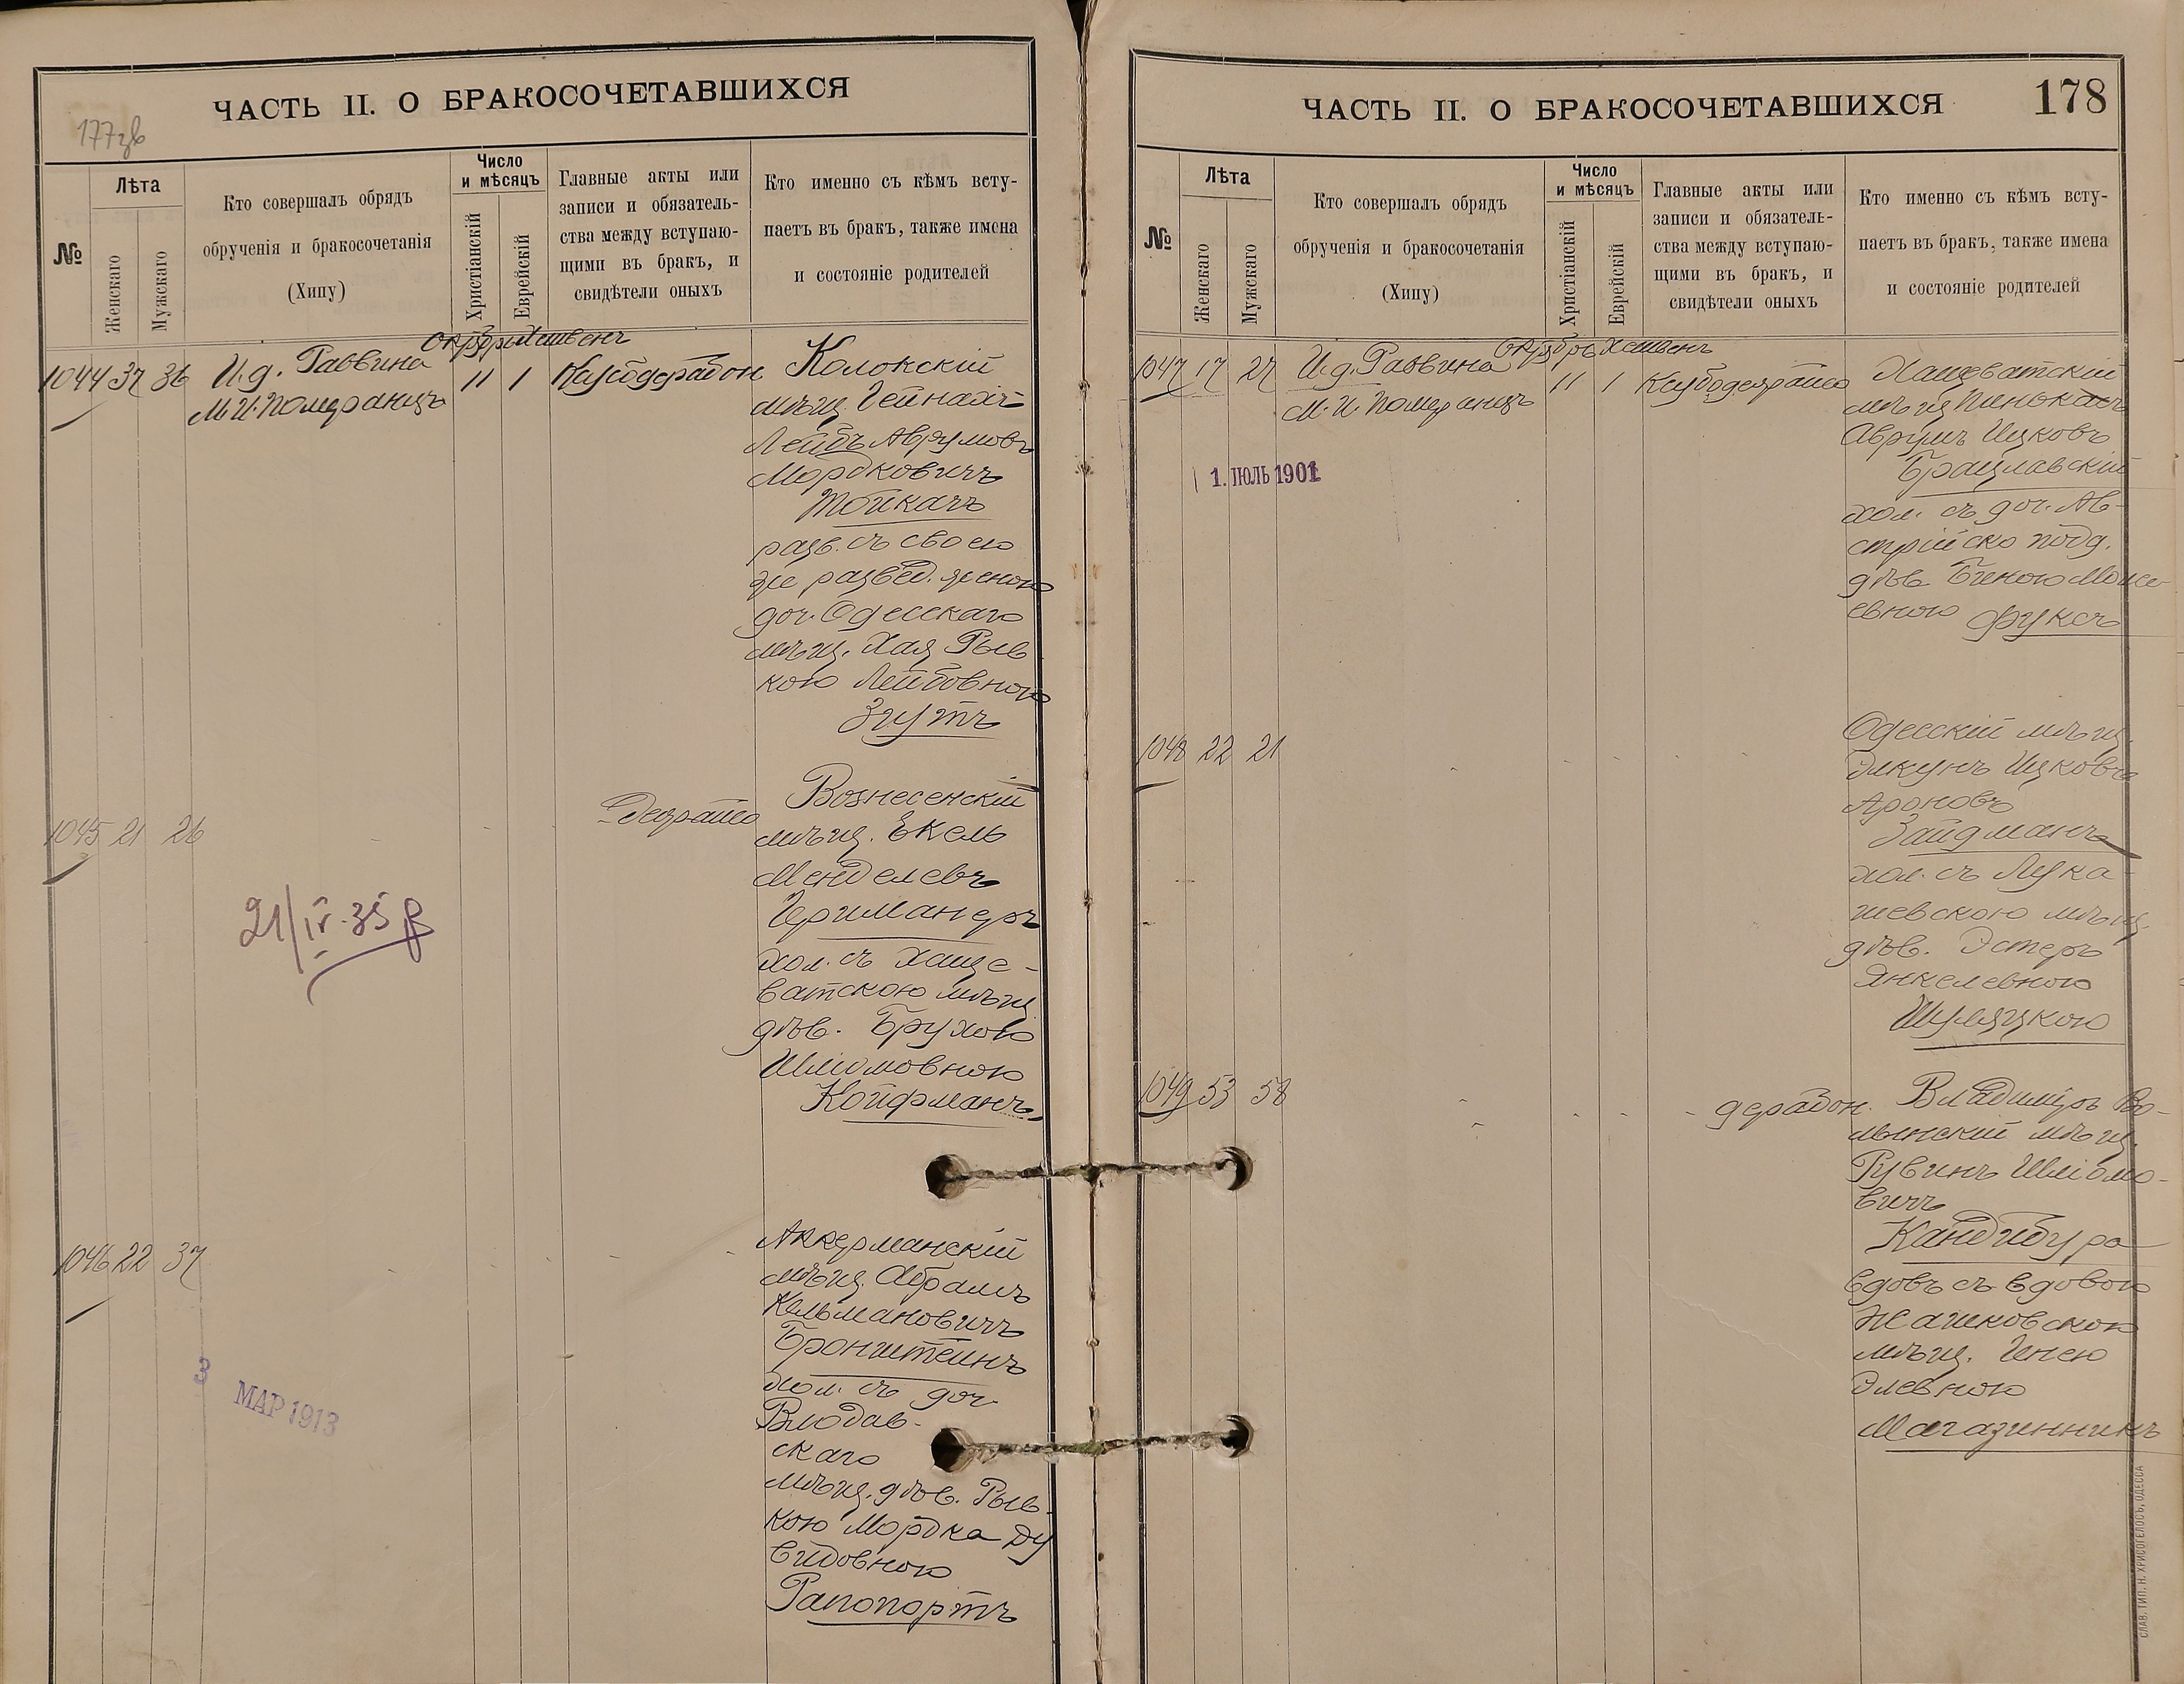 ЧАСТЬ II. О БРАКОСОЧЕТАВШИХСЯ
177
№
Лѣта
Женскаго
Мужскаго
Кто совершалъ обрядъ
обрученія и бракосочетанія
(Хипу)
Число
и мѣсяцъ
Христіанскій
Еврейскій
Главные акты или
записи и обязатель-
ства между вступаю-
щими въ бракъ, и
свидѣтели оныхъ
Кто именно съ кѣмъ всту-
паетъ въ бракъ, также имена
и состояніе родителей
1044 37 36 И.д. Раввина
М.И. Померанцъ
11 1
Колокскій
мѣщ. Гейнахъ
Лейбъ Аврумовъ
Мордковичъ
Токачъ
разв. съ своею
же развед. женою
доч. Одесскаго
мѣщ. Хая Рыв
кою Лейбовною
Згутъ
1045 21 26
Вознесенскій
мѣщ. Екель
Менделевъ
Геримандръ
хол. съ Хаще-
ватскою мѣщ
дѣв. Брухою
Шліомовною
Койфманъ
21/IV.35
1046 22 37
Аккерманскій
мѣщ. Абрамъ
Кельмановичъ
Бронштейнъ
хол. съ доч.
Влодав-
скаго
мѣщ. дѣв. Рыв-
кою Мордка Ду
видовною
Рапопортъ
3 МАР 1913
ЧАСТЬ II. О БРАКОСОЧЕТАВШИХСЯ
178
№
Лѣта
Женскаго
Мужскаго
Кто совершалъ обрядъ
обрученія и бракосочетанія
(Хипу)
Число
и мѣсяцъ
Христіанскій
Еврейскій
Главные акты или
записи и обязатель-
ства между вступаю-
щими въ бракъ, и
свидѣтели оныхъ
Кто именно съ кѣмъ всту-
паетъ въ бракъ, также имена
и состояніе родителей
1047 17 27 И.д. Раввина
М.И. Померанцъ
11 1
Хащеватскій
мѣщ Пинхасъ
Аврумъ Ицковъ
Брацлавскій
хол. съ доч. Ав-
стрійско подд.
дѣв. Бененою Мойсе
евною Фуксъ
1. ІЮЛЬ 1901
1048 22 21
Одесскій мѣщ.
Элкунъ Ицковъ
Ароновъ
Зайдманъ
хол. съ Лука-
шевскою мѣщ.
дѣв. Эстеръ
Янкелевною
Шуляцкою
1049 53 58
Владиміръ Во-
лынскій мѣщ.
Рувинъ Шліомо-
вичъ
Кандибура
вдовъ съ вдовою
Жашковскою
мѣщ. Генею
Элевною
Магазинникъ
СЛАВ. ТИП. Н. ХРИСОГЕЛОСЪ, ОДЕССА